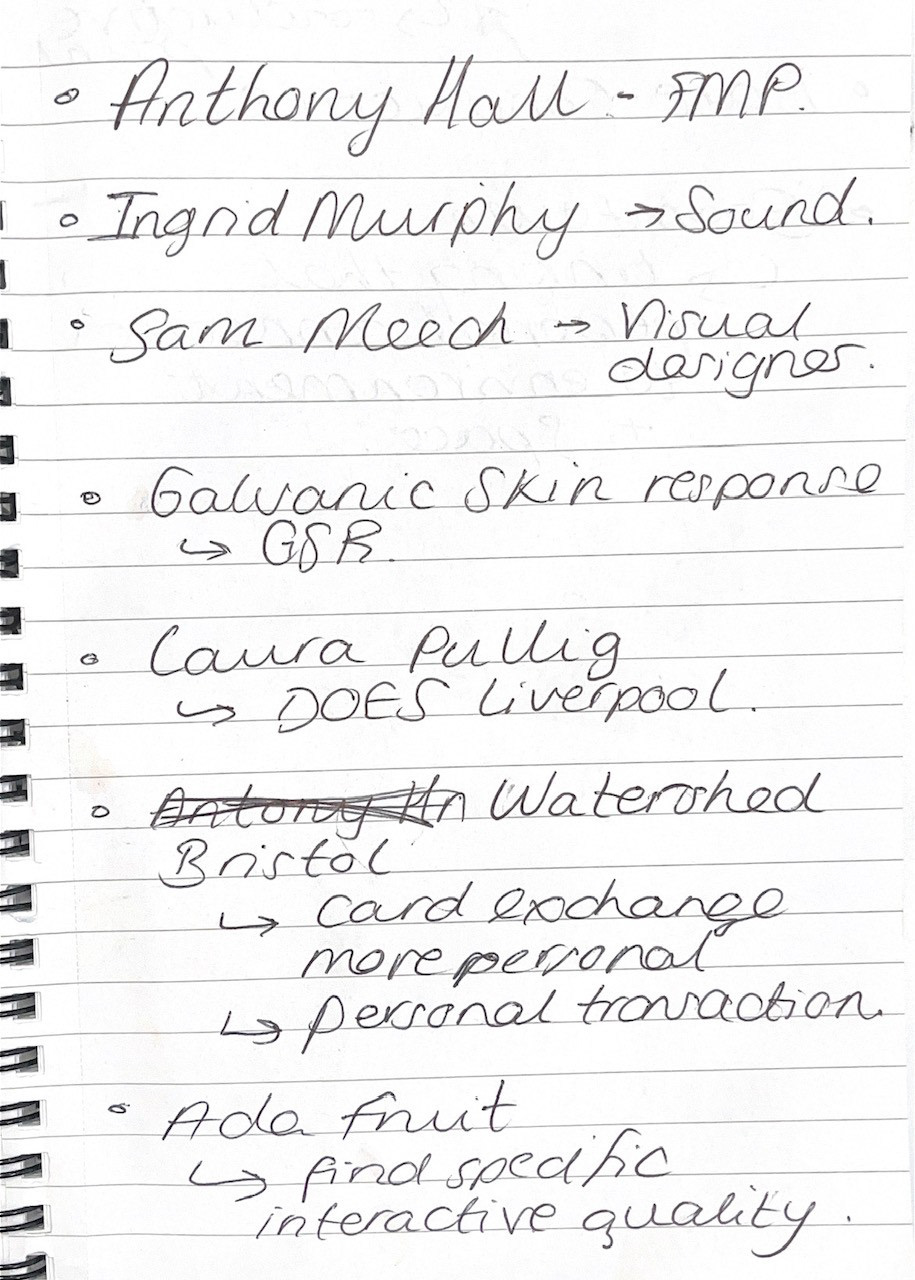 • Anthony Hall - FMP.
• Ingrid Murphy → Sound.
• Sam Meech → Visual
designer.
• Galvanic Skin response
↳ GSR.
• Laura Pullig
↳ DOES Liverpool.
• Watershed
Bristol
↳ card exchange
more personal
↳ personal transaction.
• Ada fruit
↳ find specific
interactive quality.